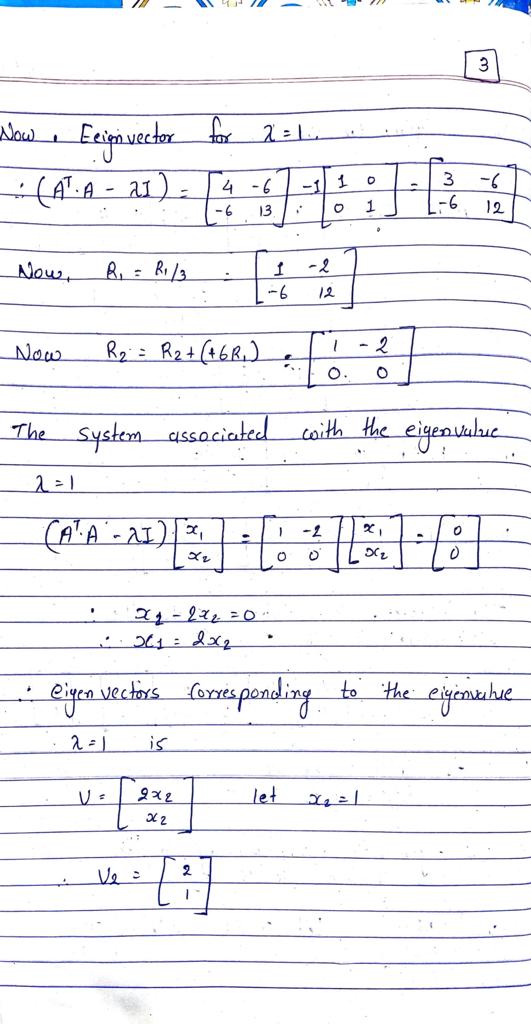 3
Now, Eeign vector for λ = 1.
∴ (Aᵀ.A - λI) = [4 -6; -6 13] - 1 [1 0; 0 1] = [3 -6; -6 12]
Now, R₁ = R₁/3 = [1 -2; -6 12]
Now R₂ = R₂ + (+6R₁) ∴ [1 -2; 0 0]
The system associated with the eigenvalue
λ = 1
(Aᵀ.A - λI) [x₁; x₂] = [1 -2; 0 0] [x₁; x₂] = [0; 0]
∴ x₁ - 2x₂ = 0
∴ x₁ = 2x₂
∴ eigen vectors corresponding to the eigenvalue
λ = 1 is
V = [2x₂; x₂] let x₂ = 1
∴ V₂ = [2; 1]